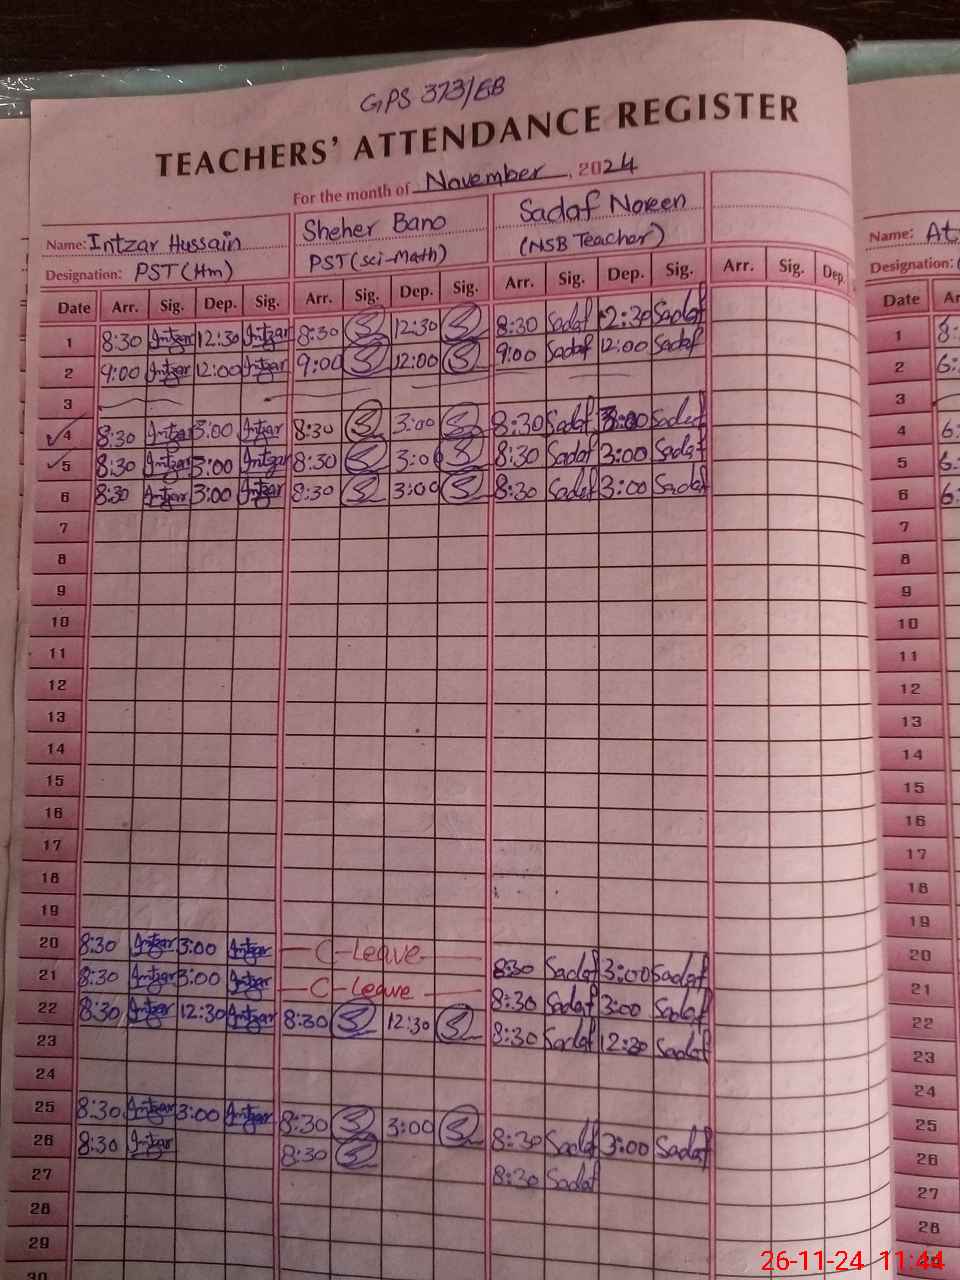 GPS 373/EB
TEACHERS' ATTENDANCE REGISTER
For the month of November, 2024
Name: Intzar Hussain Sheher Bano Sadaf Noreen Name: At
Designation: PST (Hm) PST (sci-Math) (NSB Teacher) Designation:
Date Arr. Sig. Dep. Sig. Arr. Sig. Dep. Sig. Arr. Sig. Dep. Sig. Arr. Sig. Dep. Date Ar
1 8:30 Intzar 12:30 Intzar 8:30 S 12:30 S 8:30 Sadaf 12:30 Sadaf 1 8:
2 9:00 Intzar 12:00 Intzar 9:00 S 12:00 S 9:00 Sadaf 12:00 Sadaf 2 6:
3 3
4 8:30 Intzar 3:00 Intzar 8:30 S 3:00 S 8:30 Sadaf 3:00 Sadaf 4 6:
5 8:30 Intzar 3:00 Intzar 8:30 S 3:00 S 8:30 Sadaf 3:00 Sadaf 5 6:
6 8:30 Intzar 3:00 Intzar 8:30 S 3:00 S 8:30 Sadaf 3:00 Sadaf 6 6:
7 7
8 8
9 9
10 10
11 11
12 12
13 13
14 14
15 15
16 16
17 17
18 18
19 19
20 8:30 Intzar 3:00 Intzar C-Leave 8:30 Sadaf 3:00 Sadaf 20
21 8:30 Intzar 3:00 Intzar C-Leave 8:30 Sadaf 3:00 Sadaf 21
22 8:30 Intzar 12:30 Intzar 8:30 S 12:30 S 8:30 Sadaf 12:30 Sadaf 22
23 23
24 24
25 8:30 Intzar 3:00 Intzar 8:30 S 3:00 S 8:30 Sadaf 3:00 Sadaf 25
26 8:30 Intzar 8:30 S 8:30 Sadaf 26
27 27
28 28
29
30
26-11-24 11:44